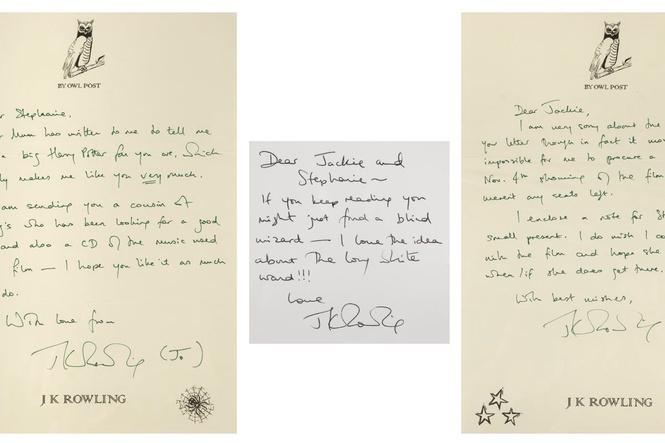 BY OWL POST
r Stephanie,
r Mum has written to me to tell me
a big Harry Potter fan you are, which
ly makes me like you very much.
am sending you a cousin of
g's who has been looking for a good
and also a CD of the music used
film — I hope you like it as much
do.
With love from
JKRowling (Jo)
J K ROWLING
Dear Jackie and
Stephanie ~
If you keep reading you
might just find a blind
wizard — I love the idea
about the long white
wand!!!
love
JKRowling
BY OWL POST
Dear Jackie,
I am very sorry about the
your letter though in fact it
impossible for me to procure a
Nov. 4th showing of the film
weren't any seats left.
I enclose a note for St
small present. I do wish I co
with the film and hope she
when/if she does get there.
With best wishes,
JKRowling
J K ROWLING